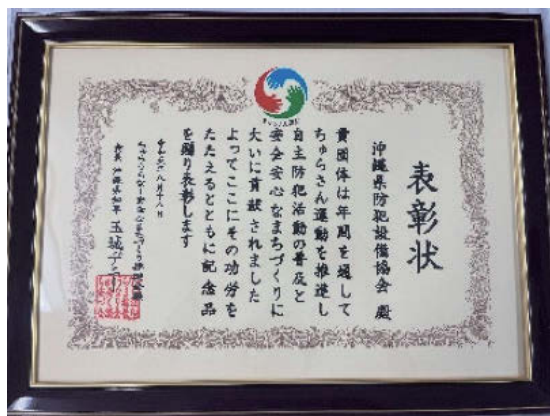 表彰状
沖縄県防犯設備協会 殿
貴団体は年間を通して
ちゅらさん運動を推進し
自主防犯活動の普及と
安全安心なまちづくりに
大いに貢献されました
よってここにその功労を
たたえるとともに記念品
を贈り表彰します
八月十八日
会長 沖縄県知事 玉城デニー